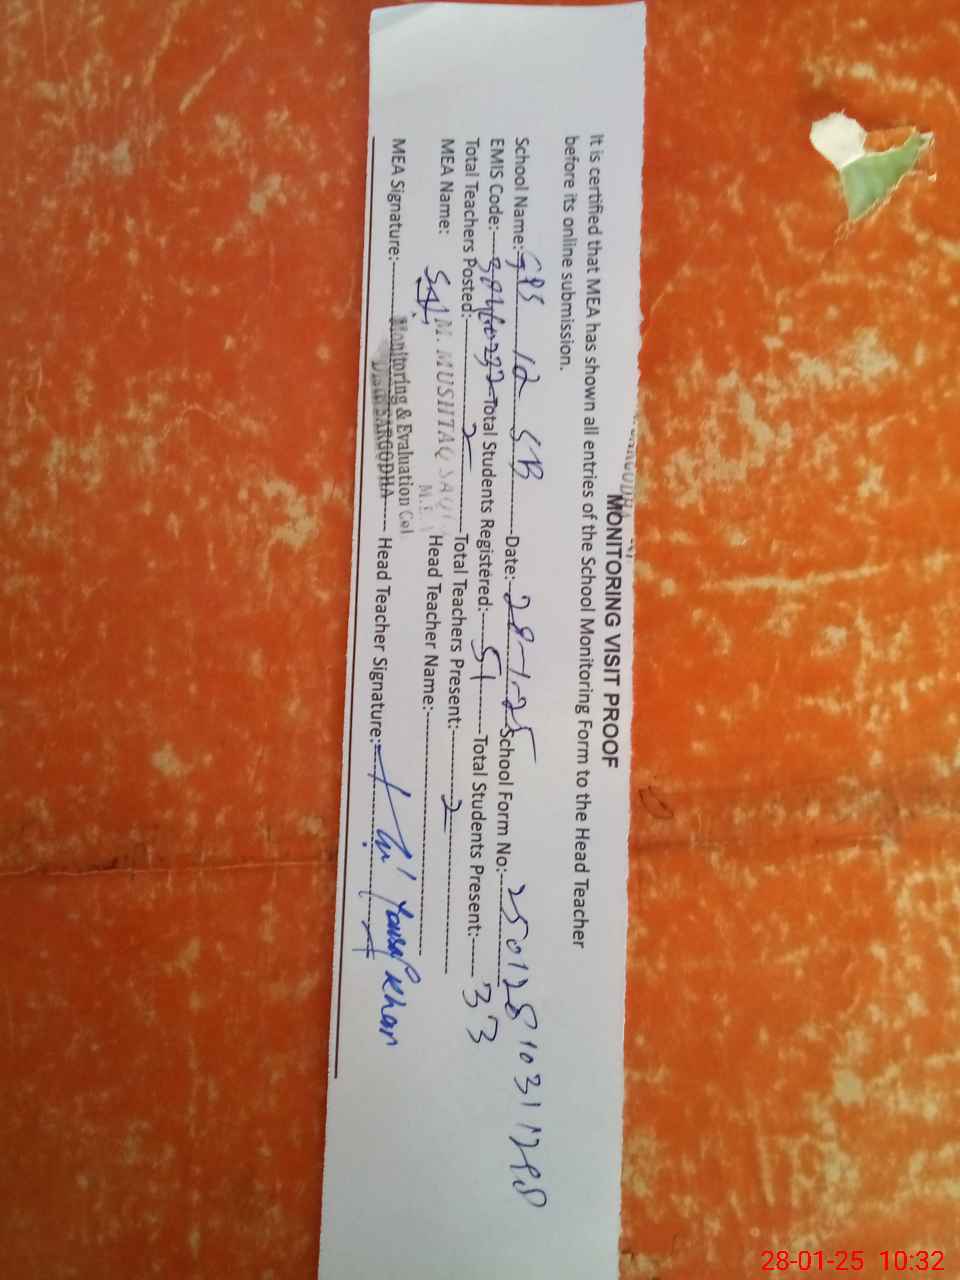 SARGODHA
MONITORING VISIT PROOF
It is certified that MEA has shown all entries of the School Monitoring Form to the Head Teacher
before its online submission.
School Name: GPS 12 SB Date: 28-1-25 School Form No: 250128
EMIS Code: Total Students Registered: 51 Total Students Present: 33
Total Teachers Posted: 2 Total Teachers Present: 2
MEA Name: M. MUSHTAQ Head Teacher Name:
MEA Signature: Monitoring & Evaluation Cel Head Teacher Signature: Yousaf Khan
SARGODHA
28-01-25 10:32